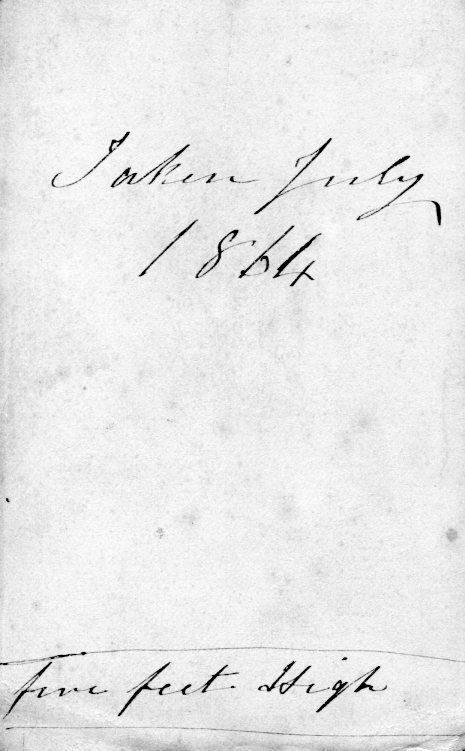 Taken July
1864
five feet High